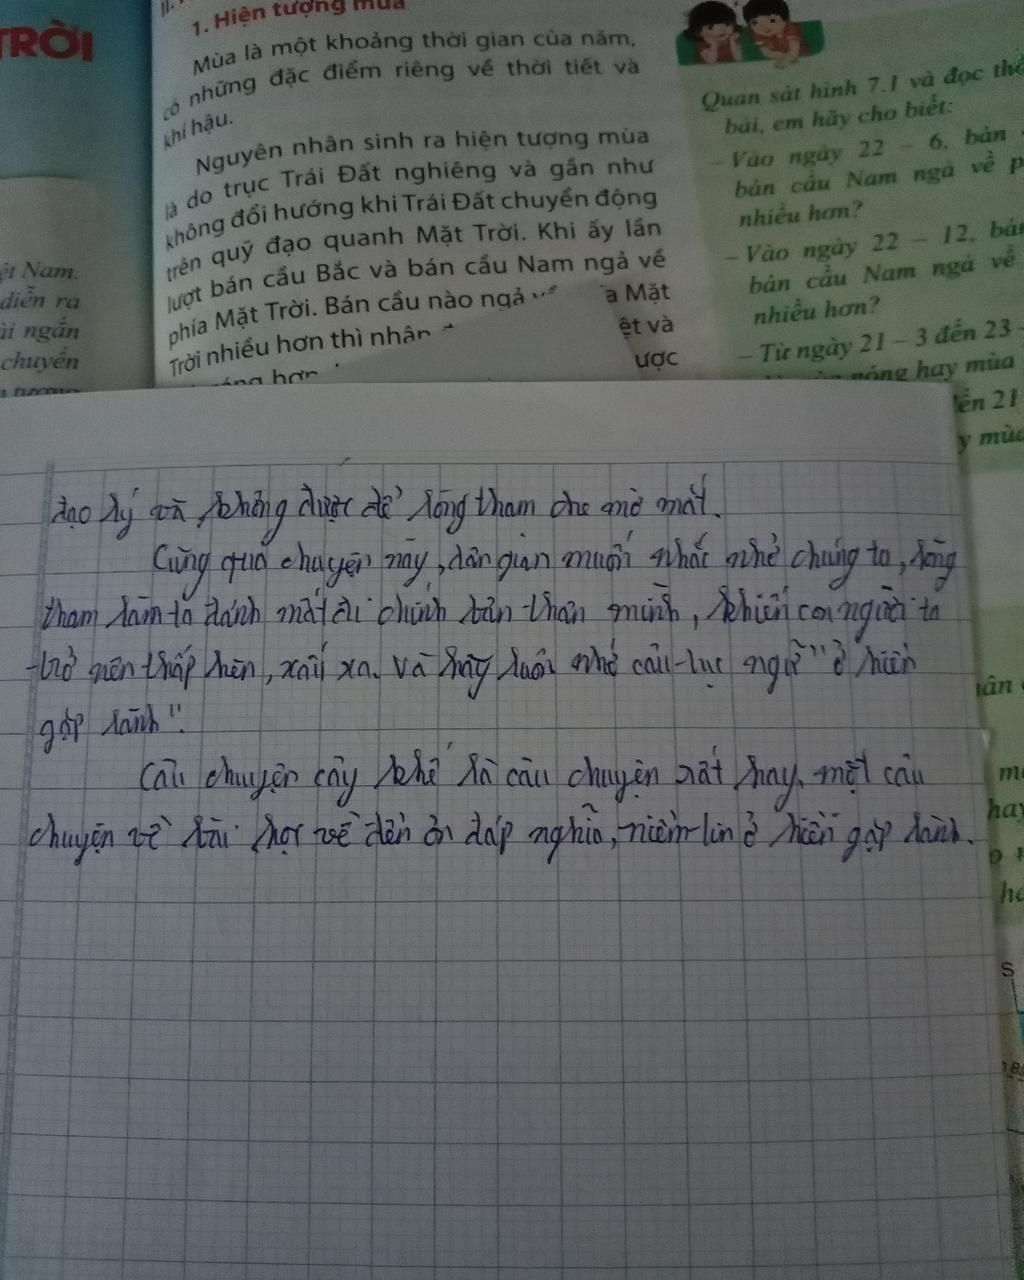 TRỜI
1. Hiện tượng mùa
Mùa là một khoảng thời gian của năm,
có những đặc điểm riêng về thời tiết và
khí hậu.
Nguyên nhân sinh ra hiện tượng mùa
là do trục Trái Đất nghiêng và gần như
không đổi hướng khi Trái Đất chuyển động
trên quỹ đạo quanh Mặt Trời. Khi ấy lần
lượt bán cầu Bắc và bán cầu Nam ngả về
phía Mặt Trời. Bán cầu nào ngả về a Mặt
Trời nhiều hơn thì nhận ệt và
hơn ược
ệt Nam.
diễn ra
ài ngắn
chuyển
Quan sát hình 7.1 và đọc
bài, em hãy cho biết:
- Vào ngày 22 - 6, bán
bán cầu Nam ngả về
nhiều hơn?
- Vào ngày 22 - 12, bán
bán cầu Nam ngả về
nhiều hơn?
- Từ ngày 21 - 3 đến 23 -
nóng hay mùa
ến 21
y mùa
đạo lý và không được để lòng tham che mờ mắt.
Cũng qua chuyện này, dân gian muốn nhắc nhở chúng ta, lòng
tham làm ta đánh mất đi chính bản thân mình, khiến con người ta
trở nên thấp hèn, xấu xa. Và hãy luôn nhớ câu tục ngữ "ở hiền
gặp lành".
Câu chuyện cây khế là câu chuyện rất hay, một câu
chuyện về bài học về đền ơn đáp nghĩa, niềm tin ở hiền gặp lành.
hay
S